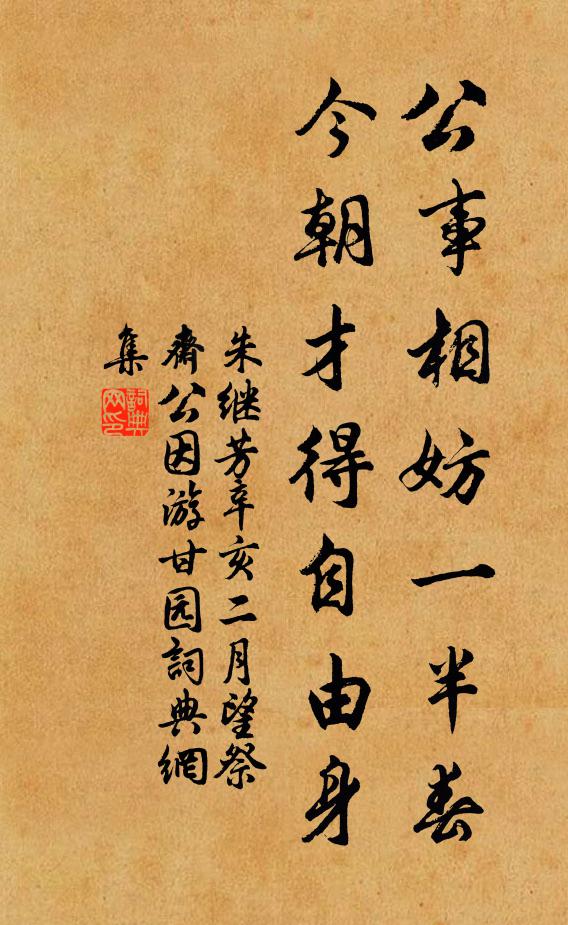 公事相妨一半春
今朝才得自由身
朱继芳辛亥二月望祭
斋公因游甘园詞典網
集
詞典
网印